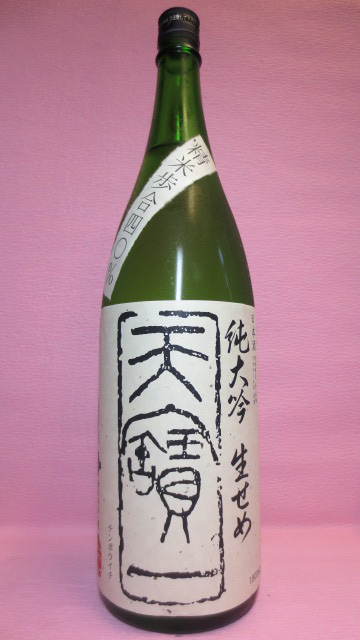 精米歩合四〇%
日本酒
純大吟 生せめ
天寶一
テンポウイチ